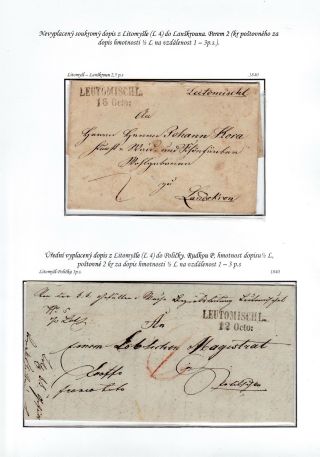 Nevyplacený soukromý dopis z Litomyšle (L 4) do Lanškrouna. Perem 2 (kr poštovného za
dopis hmotnosti ½ L na vzdálenost 1 – 3p.s.).
Litomyšl – Lanškroun 2,5 p.s
1840
LEUTOMISCHL.
16 Octo:
Leutomischl
An
Herrn Herrn Johann Flora
Kunst- Waid- und Schönfärber
Wohlgeboren
zu
Landskron
Úřední vyplacený dopis z Litomyšle (L 4) do Poličky, Rudkou P, hmotnost dopisu ½ L,
poštovné 2 kr za dopis hmotnosti ½ L na vzdálenost 1 – 3 p.s
Litomyšl-Polička 3p.s
1840
LEUTOMISCHL.
12 Octo:
An
Löblichen Magistrat
franco